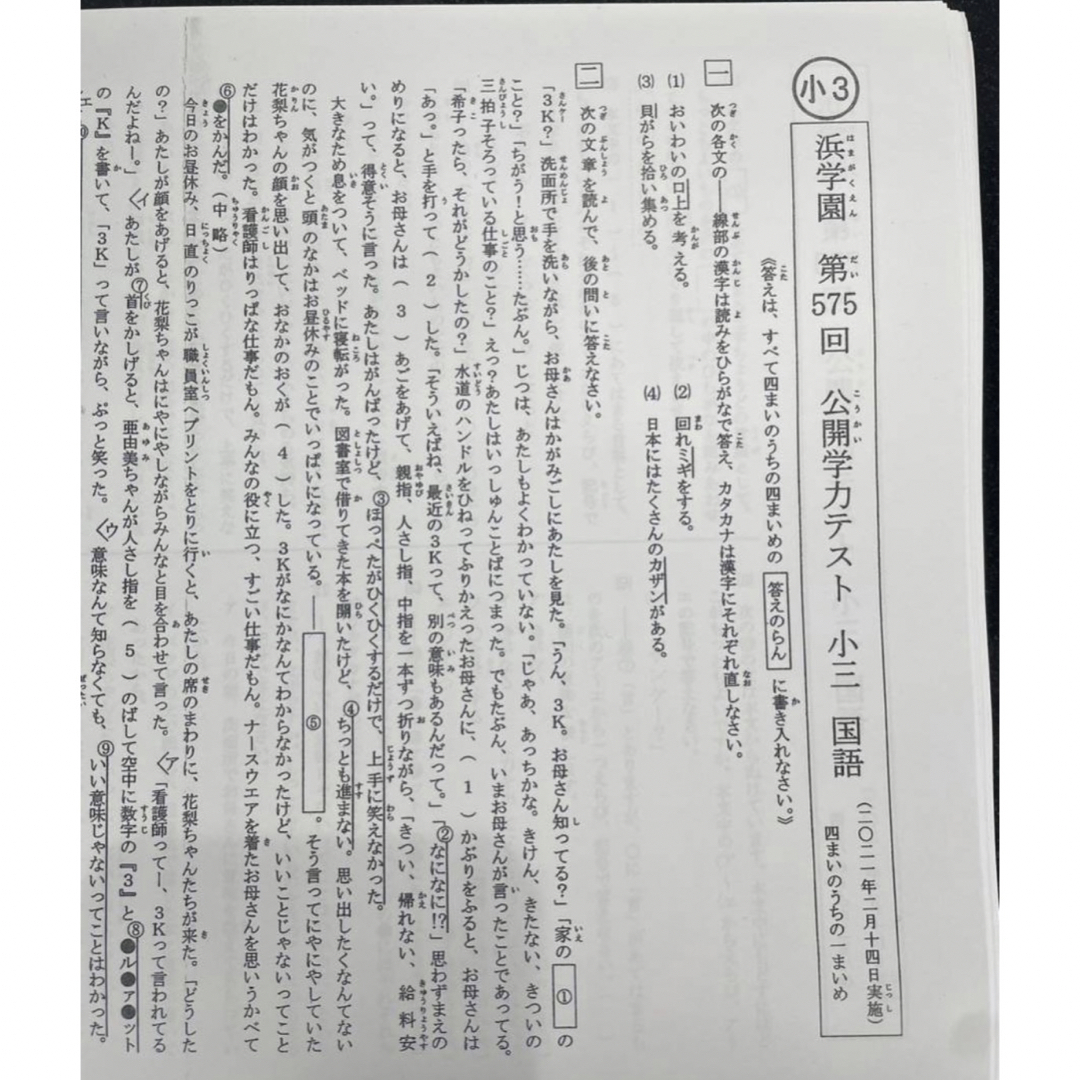 小3
浜学園 第575回 公開学力テスト 小三 国語
(二〇二一年二月十四日実施)
四まいのうちの一まいめ
《答えは、すべて四まいのうちの四まいめの 答えのらん に書き入れなさい。》
一 次の各文の――線部の漢字は読みをひらがなで答え、カタカナは漢字にそれぞれ直しなさい。
(1) おいわいの口上を考える。
(2) 回れミギをする。
(3) 貝がらを拾い集める。
(4) 日本にはたくさんのカザンがある。
二 次の文章を読んで、後の問いに答えなさい。
「3K?」洗面所で手を洗いながら、お母さんはかがみごしにあたしを見た。「うん、3K。お母さん知ってる?」「家の ① の
こと?」「ちがう!と思う……たぶん。」じつは、あたしもよくわかっていない。「じゃあ、あっちかな。きけん、きたない、きついの
三拍子そろっている仕事のこと?」えっ?あたしはいっしゅんことばにつまった。でもたぶん、いまお母さんが言ったことであってる。
「希子ったら、それがどうかしたの?」水道のハンドルをひねってふりかえったお母さんに、( 1 )かぶりをふると、お母さんは
「あっ。」と手を打って( 2 )した。「そういえばね、最近の3Kって、別の意味もあるんだって。」「②なになに!?」思わずまえの
めりになると、お母さんは( 3 )あごをあげて、親指、人さし指、中指を一本ずつ折りながら、「きつい、帰れない、給料安
い。」って、得意そうに言った。あたしはがんばったけど、③ほっぺたがひくひくするだけで、上手に笑えなかった。
大きなため息をついて、ベッドに寝転がった。図書室で借りてきた本を開いたけど、④ちっとも進まない。思い出したくなんてない
のに、気がつくと頭のなかはお昼休みのことでいっぱいになっている。―― ⑤ 。そう言ってにやにやしていた
花梨ちゃんの顔を思い出して、おなかのおくが( 4 )した。3Kがなにかなんてわからなかったけど、いいことじゃないってこと
だけはわかった。看護師はりっぱな仕事だもん。みんなの役に立つ、すごい仕事だもん。ナースウエアを着たお母さんを思いうかべて
⑥●をかんだ。(中略)
今日のお昼休み、日直のりっこが職員室へプリントをとりに行くと、あたしの席のまわりに、花梨ちゃんたちが来た。「どうした
の?」あたしが顔をあげると、花梨ちゃんはにやにやしながらみんなと目を合わせて言った。〈ア〉「看護師ってー、3Kって言われてる
んだよねー。」〈イ〉あたしが⑦首をかしげると、亜由美ちゃんが人さし指を( 5 )のばして空中に数字の『3』と⑧●ル●ァ●ット
の『K』を書いて、「3K」って言いながら、ぷっと笑った。〈ウ〉意味なんて知らなくても、⑨いい意味じゃないってことはわかった。